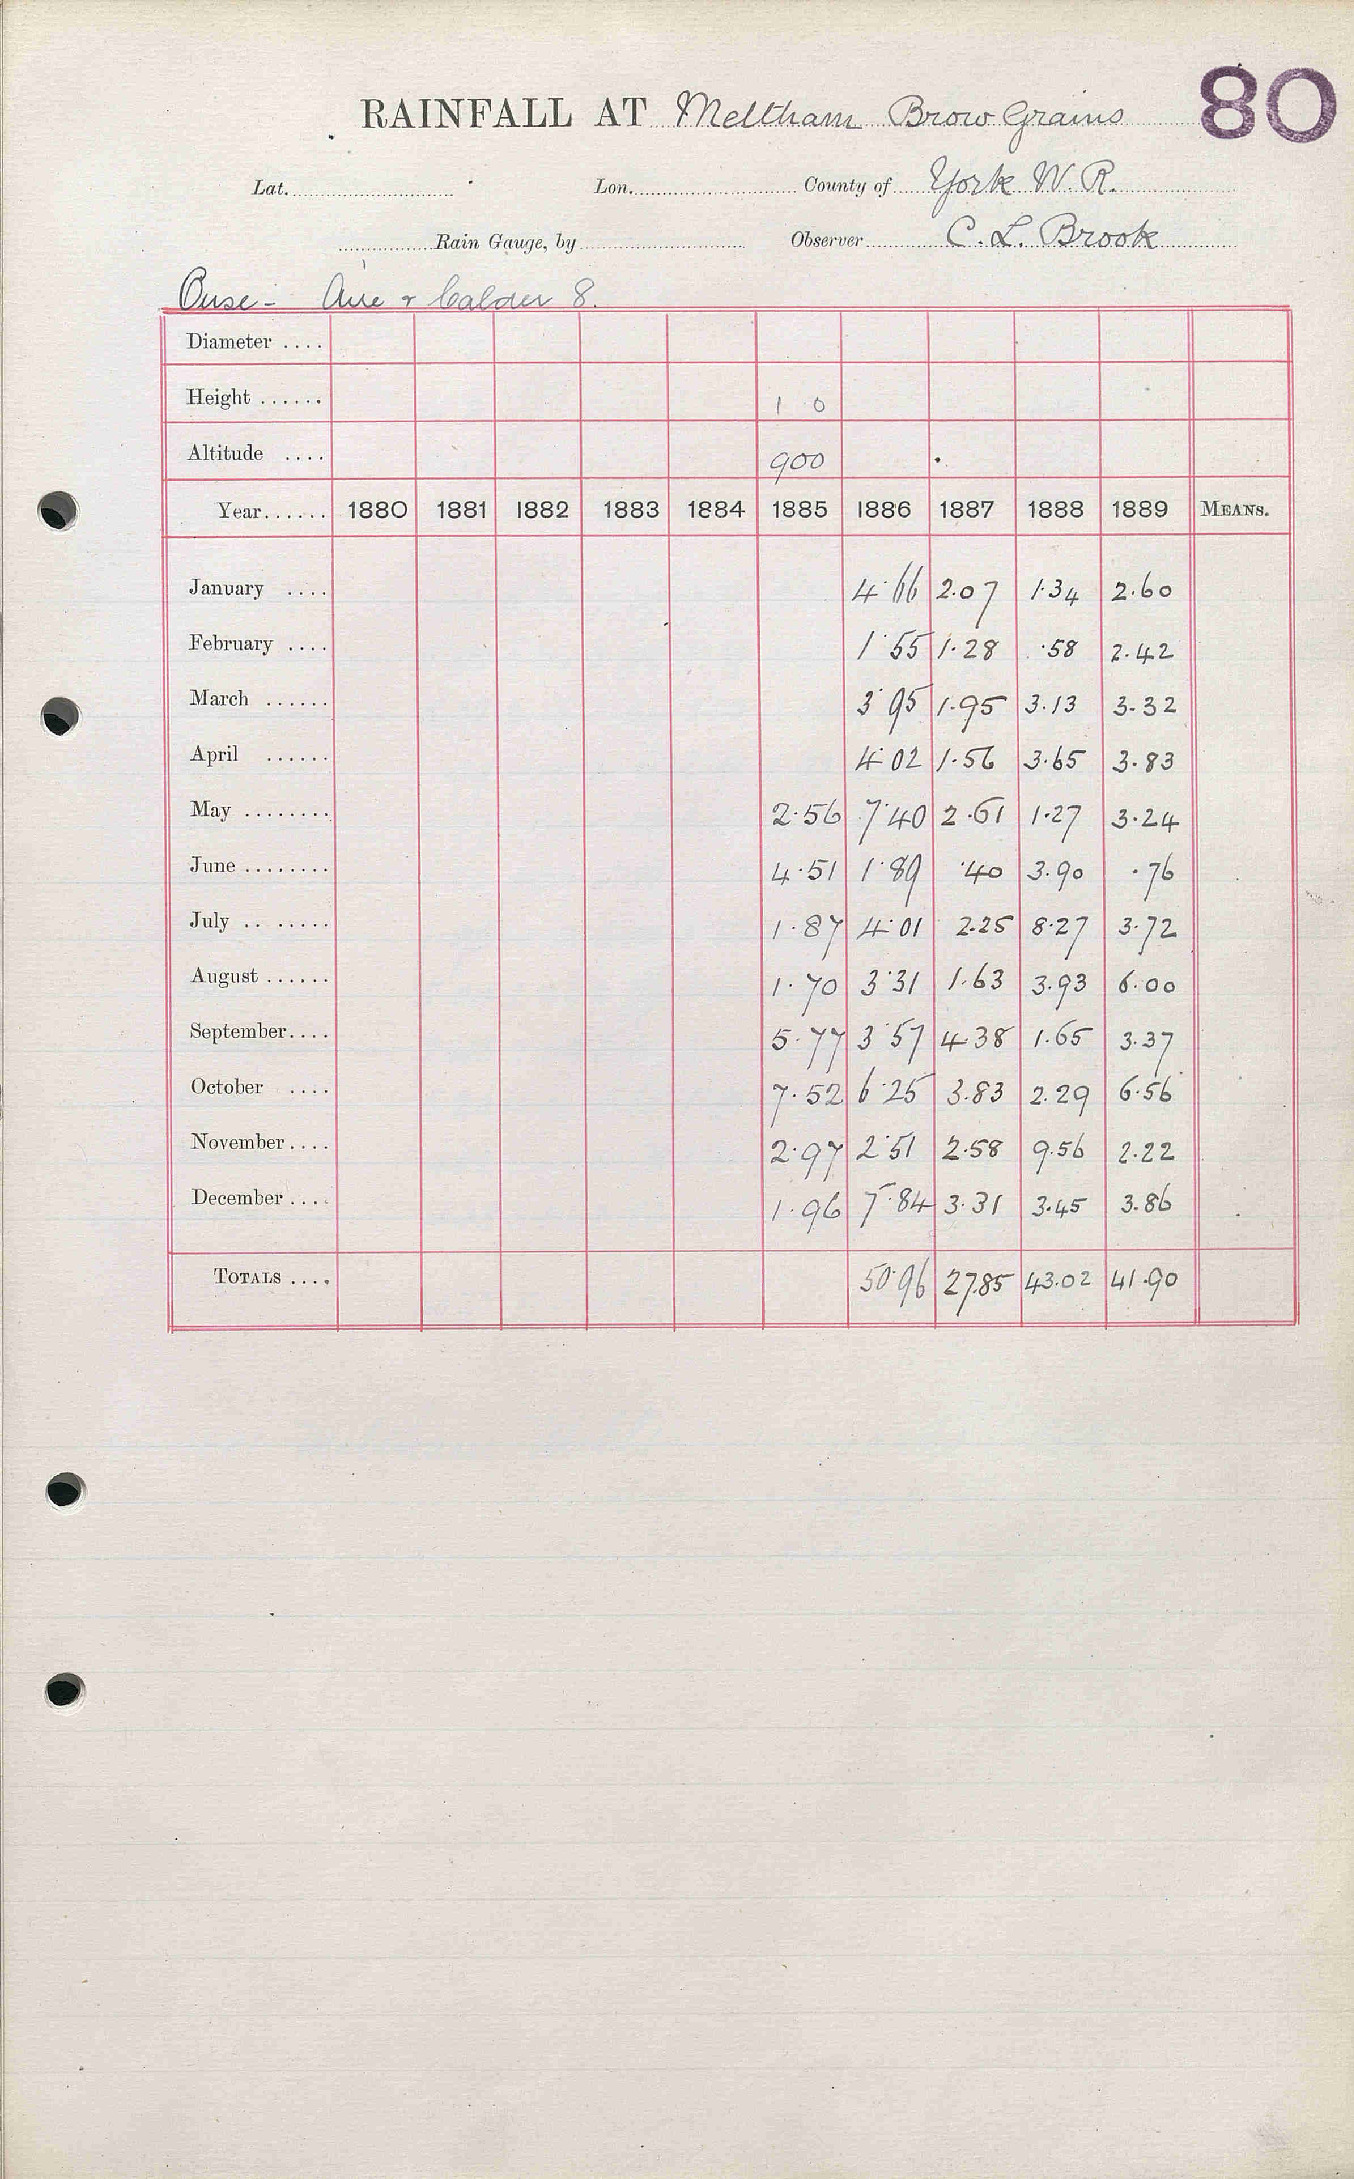 80
RAINFALL AT Meltham Brow Grains
Lat. Lon. County of York W. R.
Rain Gauge, by Observer C. L. Brook
Ouse - Aire + Calder 8.
Diameter ....
Height ...... 1 0
Altitude .... 900
Year...... 1880 1881 1882 1883 1884 1885 1886 1887 1888 1889 MEANS.
January .... 4.66 2.07 1.34 2.60
February .... 1.55 1.28 .58 2.42
March ...... 3.95 1.95 3.13 3.32
April ...... 4.02 1.56 3.65 3.83
May ........ 2.56 7.40 2.61 1.27 3.24
June ........ 4.51 1.89 .40 3.90 .76
July .. ...... 1.87 4.01 2.25 8.27 3.72
August ...... 1.70 3.31 1.63 3.93 6.00
September.... 5.77 3.57 4.38 1.65 3.37
October .... 7.52 6.25 3.83 2.29 6.56
November.... 2.97 2.51 2.58 9.56 2.22
December.... 1.96 7.84 3.31 3.45 3.86
TOTALS .... 50.96 27.85 43.02 41.90